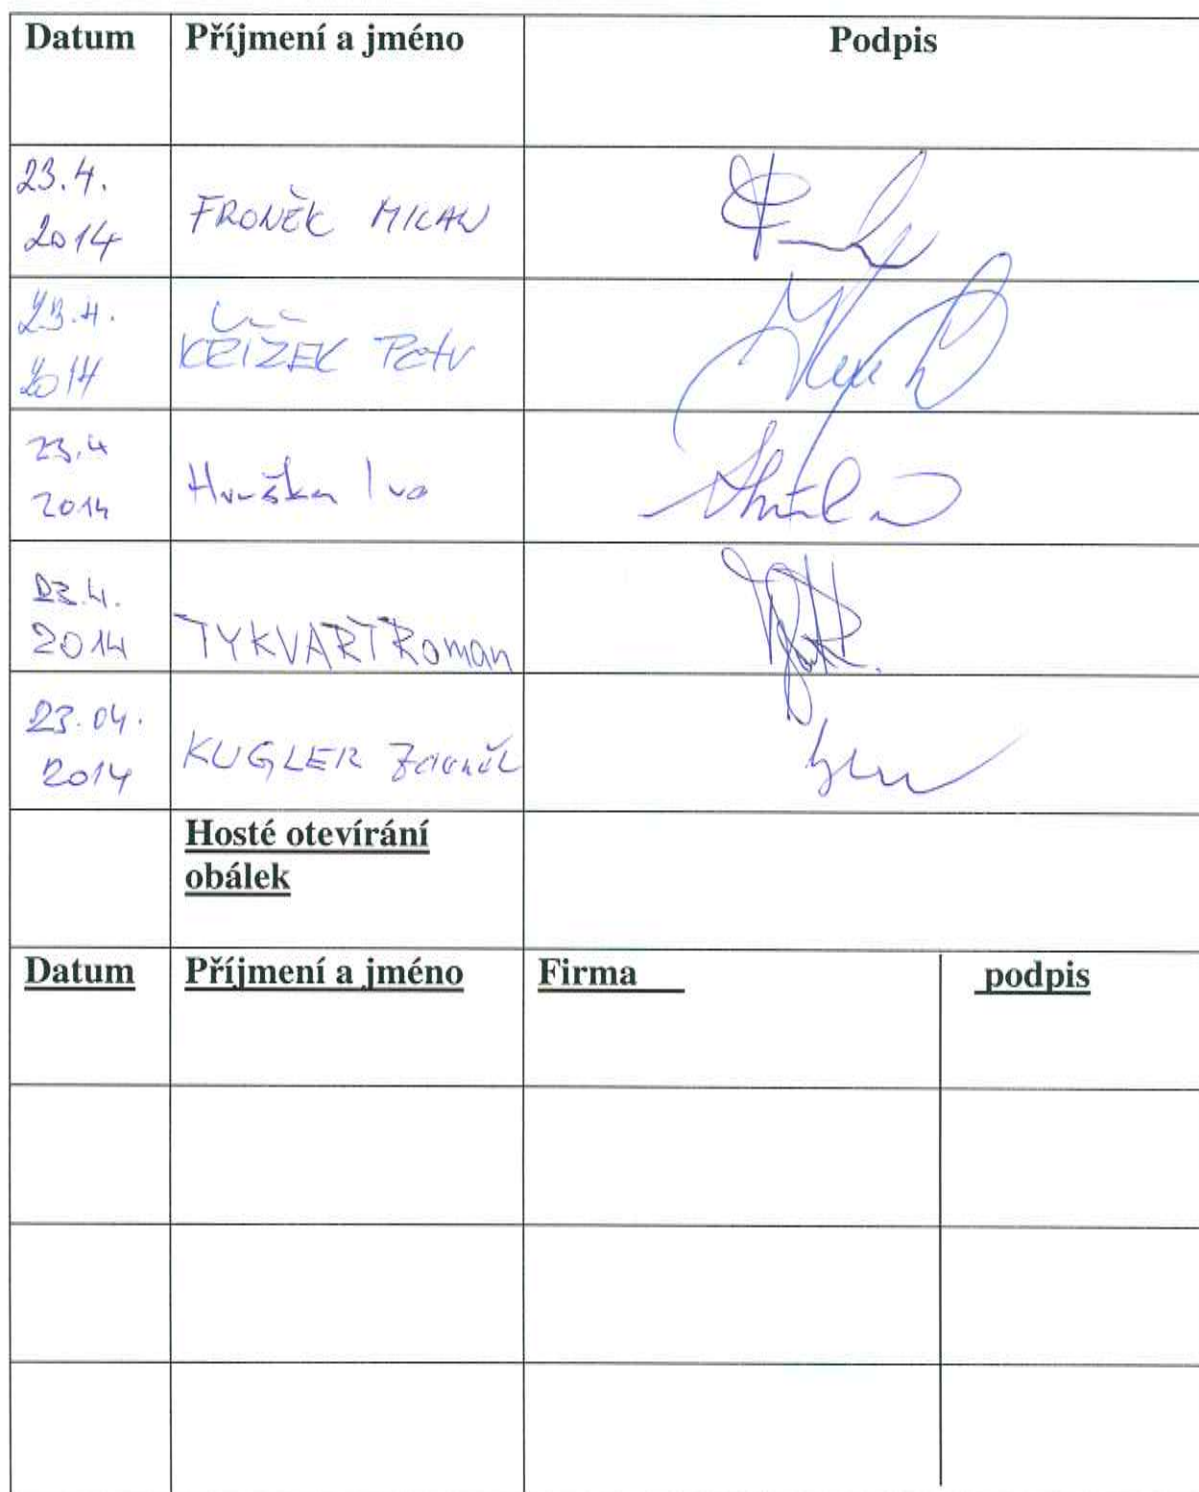 Datum Příjmení a jméno Podpis
23.4.
2014 FRONĚK MILAN
23.4.
2014 KŘÍŽEK Petr
23.4
2014 Hruška Ivo
23.4.
2014 TYKVART Roman
23.04.
2014 KUGLER Zdeněk
Hosté otevírání
obálek
Datum Příjmení a jméno Firma podpis